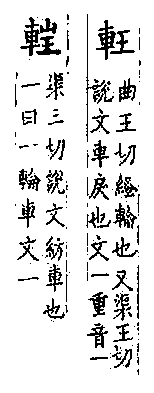 軖
曲王切繅輪也又渠王切
說文車戾也文一重音一
軠
渠三切說文紡車也
一曰一輪車文一